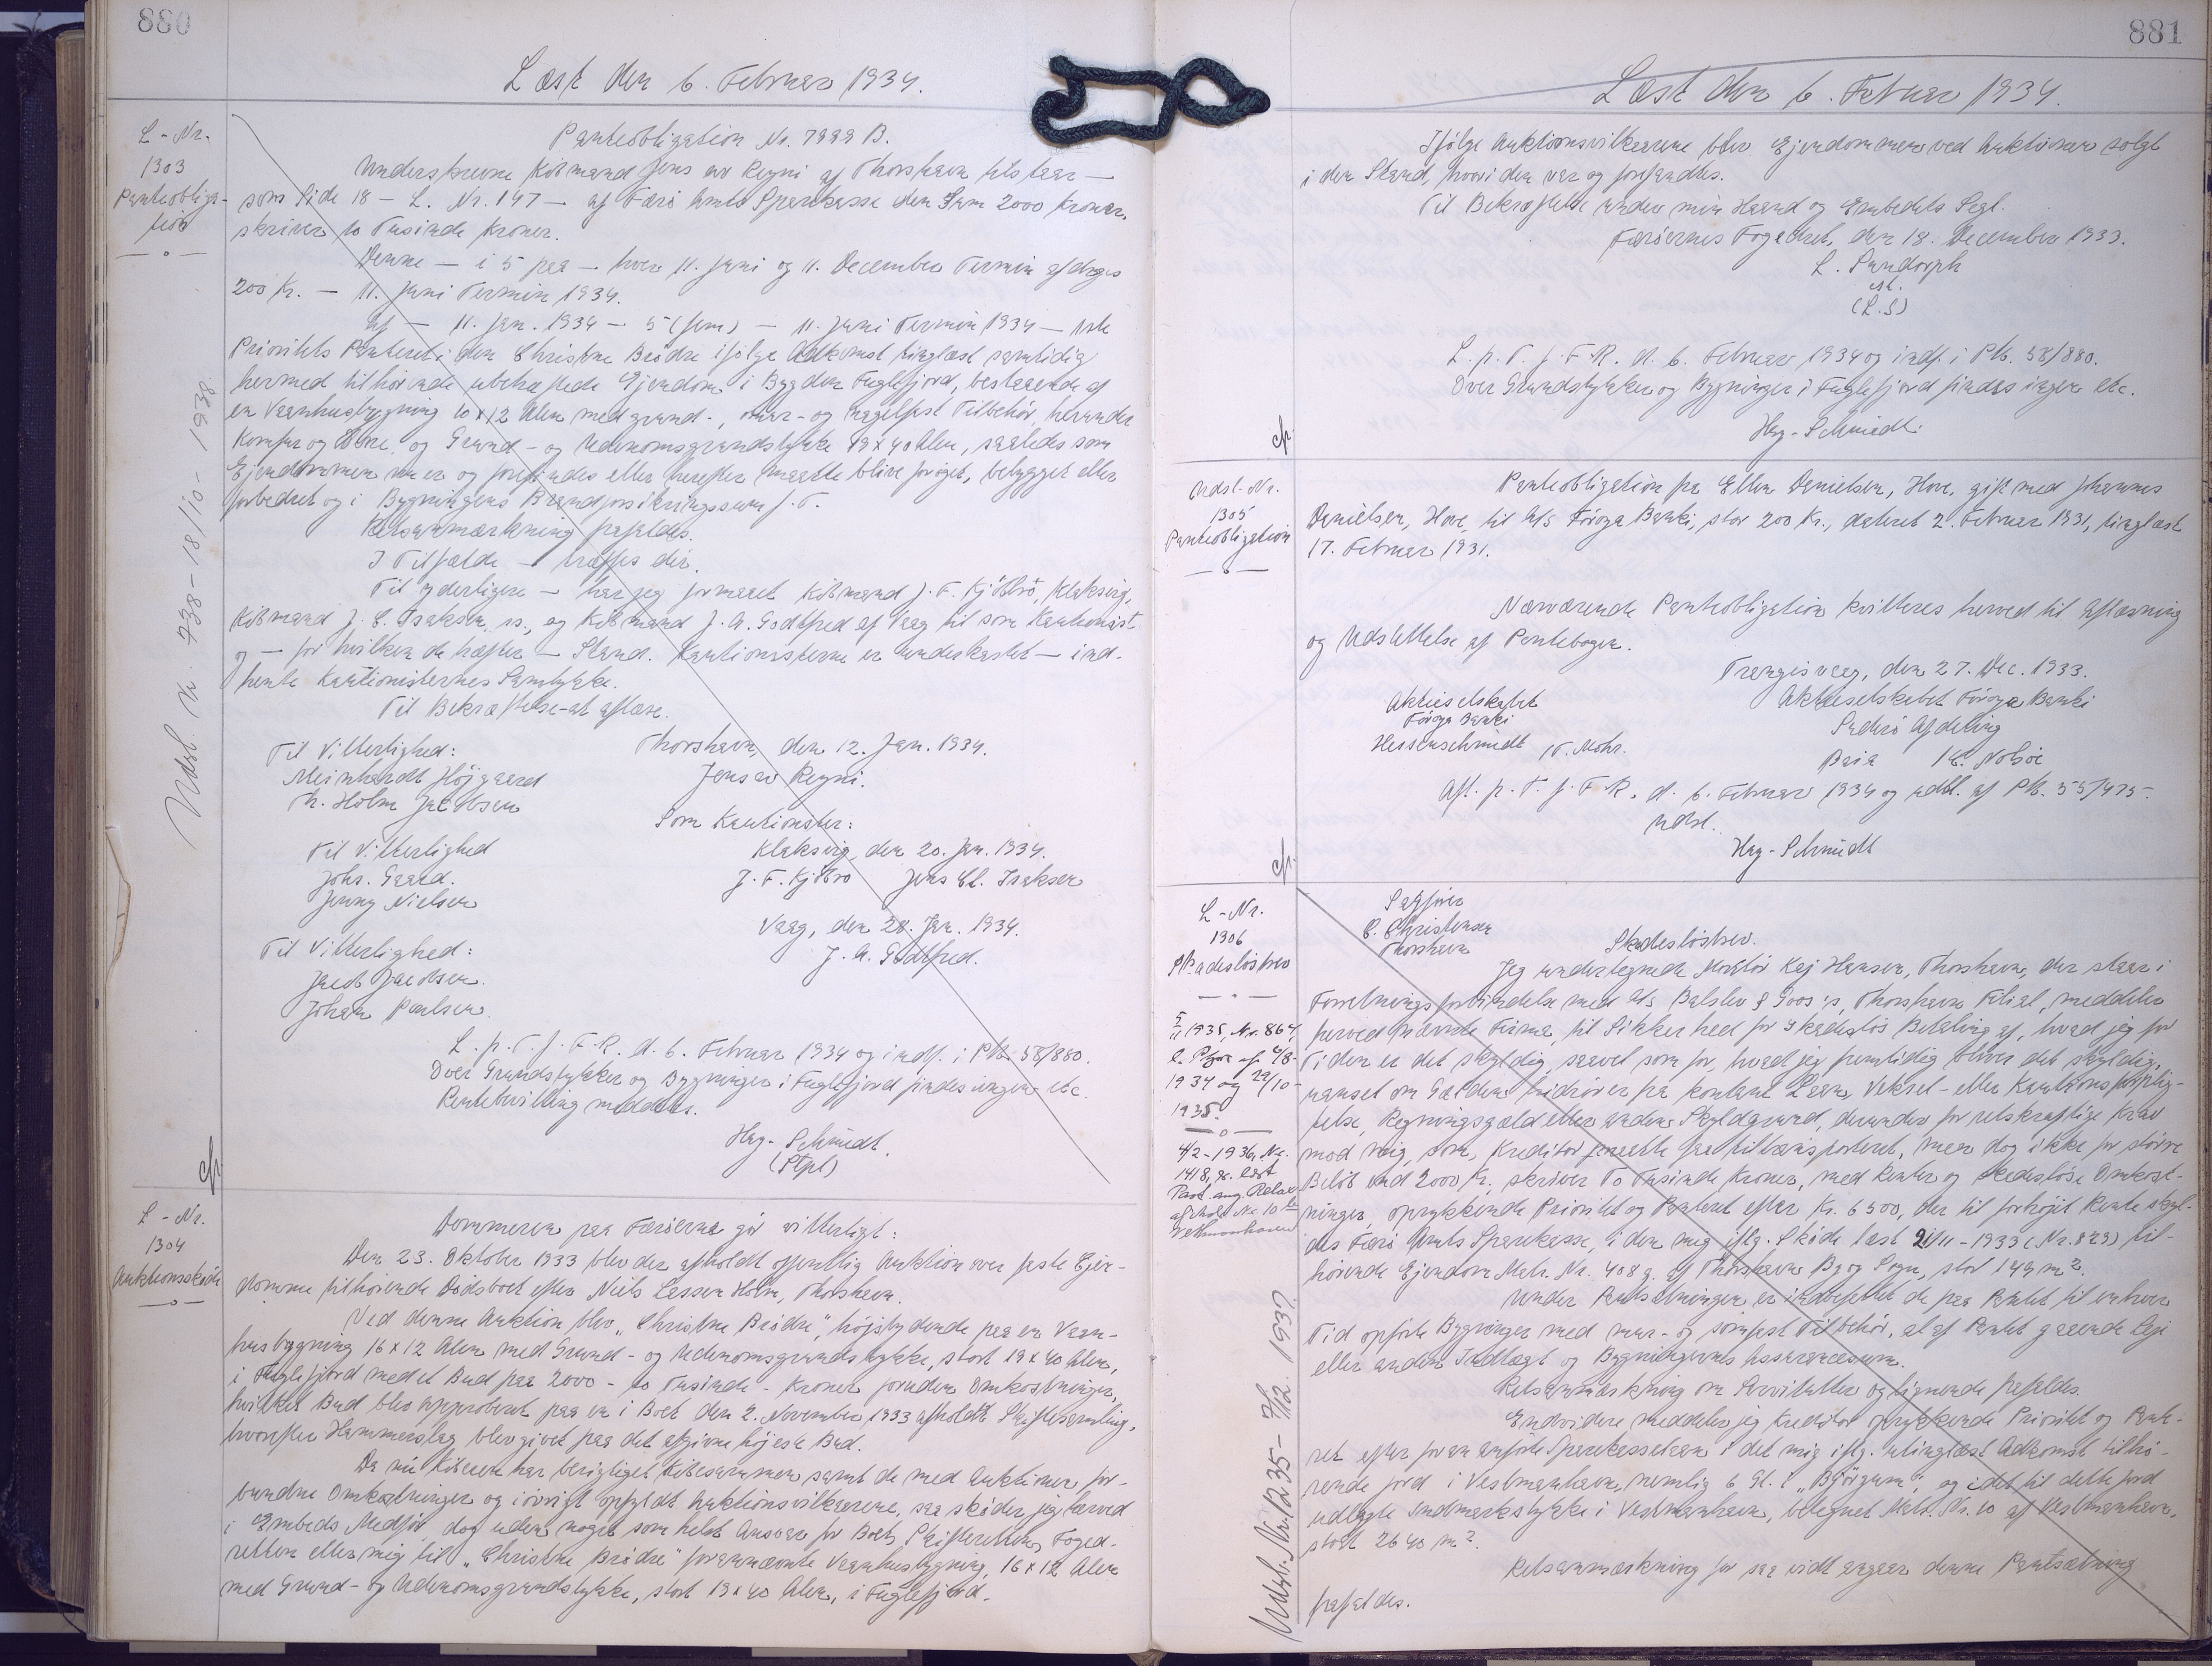 880
Læst den 6. Februar 1934.
L-Nr.
1303
Panteobliga-
tion
Udsl. Nr. 738 - 18/10 - 1938.
Panteobligation Nr. 7999 B.
Undertegnede Købmand Jens av Reyni af Thorshavn tilstaar —
som Side 18 - L. Nr. 147 — af Færø Amts Sparekasse den Sum 2000 Kroner,
skriver to Tusinde Kroner.
Denne — i 5 paa — hver 11. Juni og 11. December Termin afdrages
200 Kr. — 11. Juni Termin 1934.
af — 11. Jan. 1934 — 5 (fem) — 11. Juni Termin 1934 — 1ste
Prioritets Panteret i den Christne Brødre ifølge Adkomst tinglæst samtidig
hermed tilhørende ubehæftede Ejendom i Bygden Fuglefjord, bestaaende af
en Vaanhusbygning 10 x 12 Alen med grund-, mur- og nagelfast Tilbehør, herunder
Komfur og Ovne og Grund- og Udenomsgrundstykke 19 x 40 Alen, saaledes som
Ejendommen nu er og forefindes eller herefter maatte blive forøget, bebygget eller
forbedret og i Bygningens Brandforsikringssum f. T.
Retsanmærkning frafaldes.
I Tilfælde — træffes dér.
Til yderligere — har jeg formaaet Købmand J. F. Kjølbro, Klaksvig,
Købmand J. E. Isaksen, ss., og Købmand J. A. Godtfred af Vaag til som Kautionist
og — for hvilken de hæfter — Stand. Kautionisterne er underkastet — ind-
hente Kautionisternes Samtykke.
Til Bekræftelse - at aflæse.
Til Vitterlighed:
Thorshavn, den 12. Jan. 1934.
Meinhardt Højgaard
Jens av Reyni.
Th. Holm Jacobsen
Som Kautionister:
Til Vitterlighed
Klaksvig, den 20. Jan. 1934.
Johs. Gaard.
J. F. Kjølbro Jens El. Isaksen
Jenny Nielsen
Vaag, den 28. Jan. 1934.
Til Vitterlighed:
J. A. Godtfred.
Jacob Jacobsen.
Johan Poulsen.
L. p. T. f. F. R. d. 6. Februar 1934 og indf. i Pb. 58/880.
Over Grundstykker og Bygninger i Fuglefjord findes ingen etc.
Rentebevilling meddeles.
Hag-Schmidt.
(Stpl)
L-Nr.
1304
Auktionsskøde
Dommeren paa Færøerne gør vitterligt:
Den 23. Oktober 1933 blev der afholdt offentlig Auktion over faste Ejen-
domme tilhørende Dødsboet efter Niels Lassen Holm, Thorshavn.
Ved denne Auktion blev „Christne Brødre“, højstbydende paa en Vaan-
husbygning 16 x 12 Alen med Grund- og Udenomsgrundstykke, stort 19 x 40 Alen,
i Fuglefjord med et Bud paa 2000 - to Tusinde - Kroner foruden Omkostninger,
hvilket Bud blev approberet paa en i Boet den 2. November 1933 afholdt Skiftesamling,
hvorefter Hammerslag blev givet paa det afgivne højeste Bud.
Da nu Køberen har berigtiget Købesummen samt de med Auktionen for-
bundne Omkostninger og i øvrigt opfyldt Auktionsvilkaarene, saa skøder jeg herved
i Embeds Medfør dog uden noget som helst Ansvar for Boet, Skifteretten, Foged-
retten eller mig til „Christne Brødre“ forannævnte Vaanhusbygning, 16 x 12 Alen
med Grund- og Udenomsgrundstykke, stort 19 x 40 Alen, i Fuglefjord.
881
Læst den 6. Februar 1934.
Ifølge Auktionsvilkaarene blev Ejendommen ved Auktionen solgt
i den Stand, hvori den var og forfandtes.
Til Bekræftelse under min Haand og Embedets Segl.
Færøernes Fogedret, den 18. December 1933.
L. Sundorph
st.
(L.S)
L. p. T. f. F. R. d. 6. Februar 1934 og indf. i Pb. 58/880.
Over Grundstykker og Bygninger i Fuglefjord findes ingen etc.
Hag-Schmidt.
Udsl-Nr.
1305
Panteobligation
Panteobligation fra Ellen Danielsen, Hove, gift med Johannes
Danielsen, Hove, til A/S Føroya Banki, stor 200 Kr., dateret 2. Februar 1931, tinglæst
17. Februar 1931.
Nærværende Panteobligation kvitteres herved til Aflæsning
og Udslettelse af Pantebogen.
Trangisvaag, den 27. Dec. 1933.
Aktieselskabet
Aktieselskabet Föroya Banki
Föroya Banki
Suderö Afdeling
Hessenschmidt T. Mohr.
Aft. p. T. f. F. R. d. 6. Februar 1934 og udsl. af Pb. 55/475.
Udsl.
Hag-Schmidt
L-Nr.
1306
Skadesløsbrev
1935, Nr. 867,
1934 og 29/10-
1935.
4/2-1936, Nr.
Udsl. Nr. 1235 - 7/12 1937.
Sagfører
C. Christensen
Thorshavn
Skadesløsbrev.
Jeg undertegnede Montør Kaj Hansen, Thorshavn, der staar i
Forretningsforbindelse med A/S Balslev & Goos's, Thorshavn Filial, meddeler
herved nævnte Firma, til Sikkerhed for skadesløs Betaling af, hvad jeg for
Tiden er det skyldig, saavel som for, hvad jeg fremtidig bliver det skyldig,
uanset om Gælden hidrører fra kontant Laan, Veksel- eller Kautionsforplig-
telse, Regningsgæld eller anden Skyldgrund, derunder for retskraftige Krav
mod mig, som Kreditor maatte faa tiltransporteret, men dog ikke for større
Beløb end 2000 Kr., skriver To Tusinde Kroner, med Renter og skadesløse Omkost-
ninger, oprykkende Prioritet og Panteret efter Kr. 6500, der til forhøjet Rente skyl-
des Færø Amts Sparekasse, i den mig iflg. Skøde læst 21/11-1933 (Nr. 829) til-
hørende Ejendom Matr. Nr. 408 g. af Thorshavn By og Sogn, stor 149 m².
Under Pantsætningen er indbefattet de paa Pantet til enhver
Tid opførte Bygninger med mur- og sømfast Tilbehør, al af Pantet gaaende Leje
eller anden Indtægt og Bygningernes Assurancesum.
Retsanmærkning om Servitutter og lignende frafaldes.
Endvidere meddeler jeg Kreditor oprykkende Prioritet og Pante-
ret efter foran anførte Sparekasselaan i det mig iflg. utinglæst Adkomst tilhø-
rende Jord i Vestmanhavn, nemlig 6 Gl. i „Bjørgum“, og i det til dette Jord
udlagte Indmarksstykke i Vestmanhavn, betegnet Matr. Nr. 10 af Vestmanhavn,
stort 2640 m².
Retsanmærkning for saa vidt angaar denne Pantsætning
frafaldes.